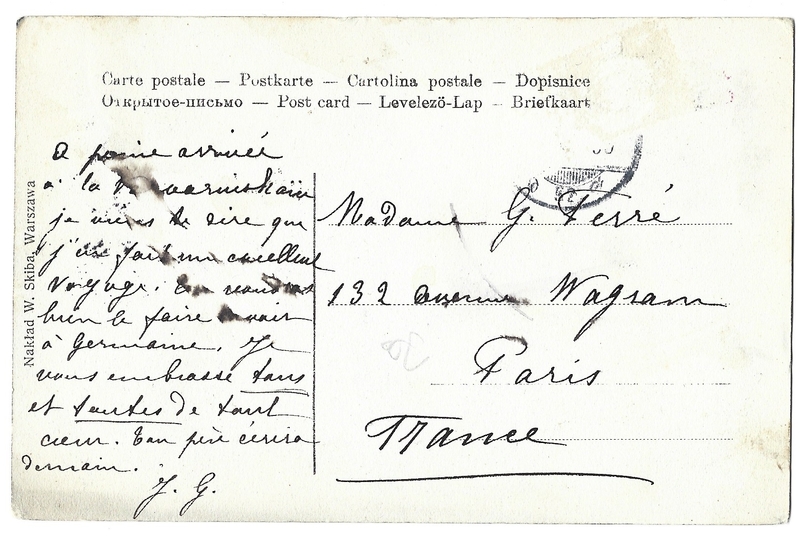 Carte postale — Postkarte — Cartolina postale — Dopisnice
Открытое-письмо — Post card — Levelezö-Lap — Briefkaart
Nakład W. Skiba, Warszawa
A peine arrivée
à la
je viens te dire que
j'ai fait un excellent
voyage. Tu voudras
bien le faire savoir
à Germaine. Je
vous embrasse tous
et toutes de tout
cœur. Ton père écrira
demain.
J. G.
Madame G. Ferré
132 avenue Wagram
Paris
France